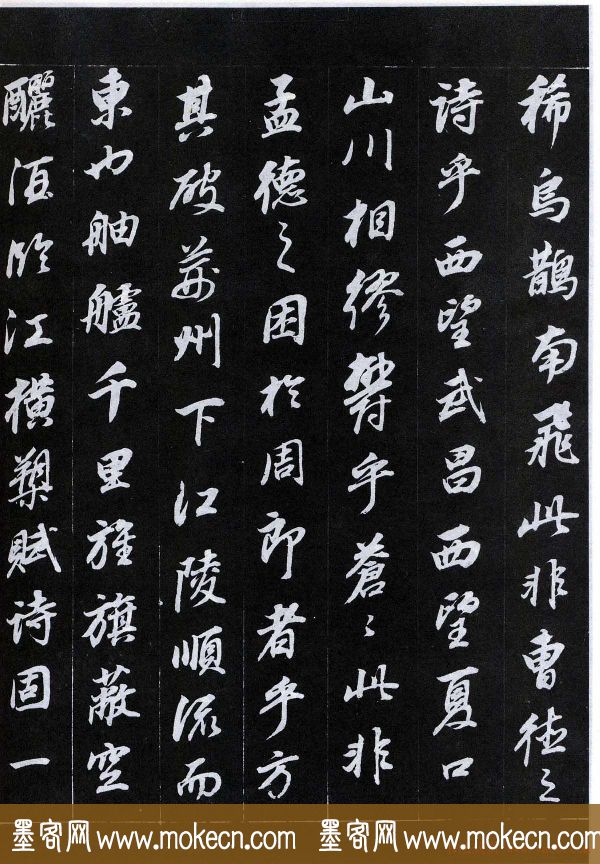 稀烏鵲南飛此非曹德之
詩乎西望武昌西望夏口
山川相繆鬱乎蒼〻此非
孟德之困於周郎者乎方
其破荊州下江陵順流而
東也舳艫千里旌旗蔽空
釃酒臨江橫槊賦詩固一
墨客网 www.mokecn.com 墨客网 www.mokecn.com